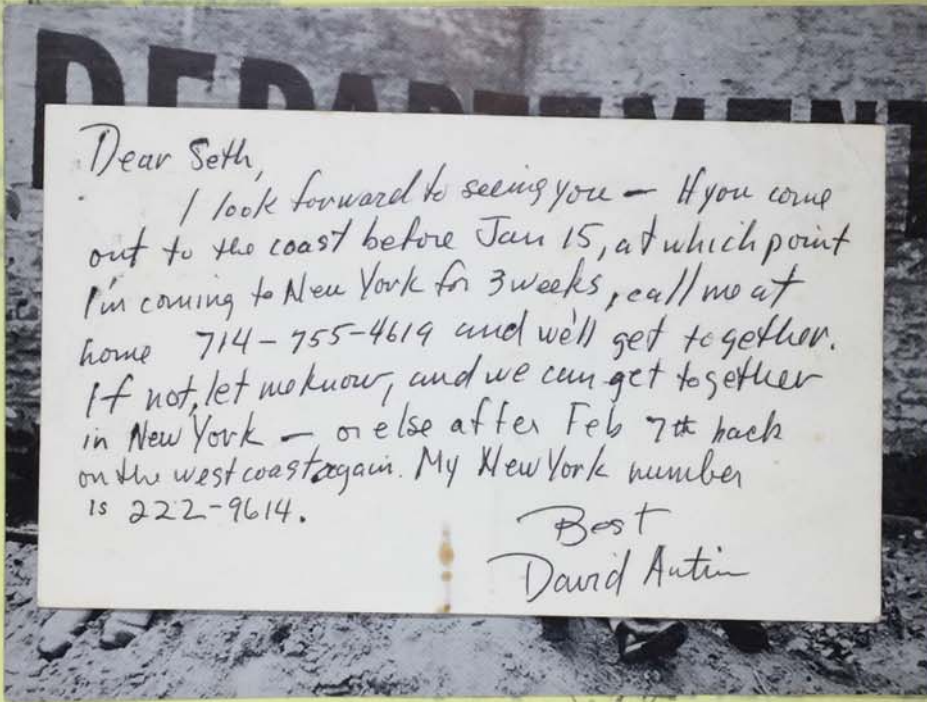 DEPARTEMENT
Dear Seth,
I look forward to seeing you — If you come
out to the coast before Jan 15, at which point
I'm coming to New York for 3 weeks, call me at
home 714-755-4619 and we'll get together.
If not, let me know, and we can get together
in New York — or else after Feb 7th back
on the west coast again. My New York number
is 222-9614.
Best
David Antin